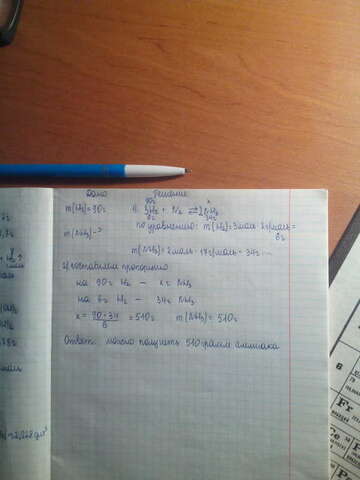 Дано
Решение
m(H₂)=90г
m(NH₃)-?
90г x
1) 3H₂ + N₂ ⇄ 2NH₃
6г 34г
по уравнению: m(H₂)=3моль·2г/моль=
6г
m(NH₃)=2моль·17г/моль=34г
2) составляем пропорцию
на 90г H₂ – xг NH₃
на 6г H₂ – 34г NH₃
x = 90·34/6 = 510г m(NH₃)=510г
Ответ: можно получить 510 грамм аммиака
моль
В
Fr